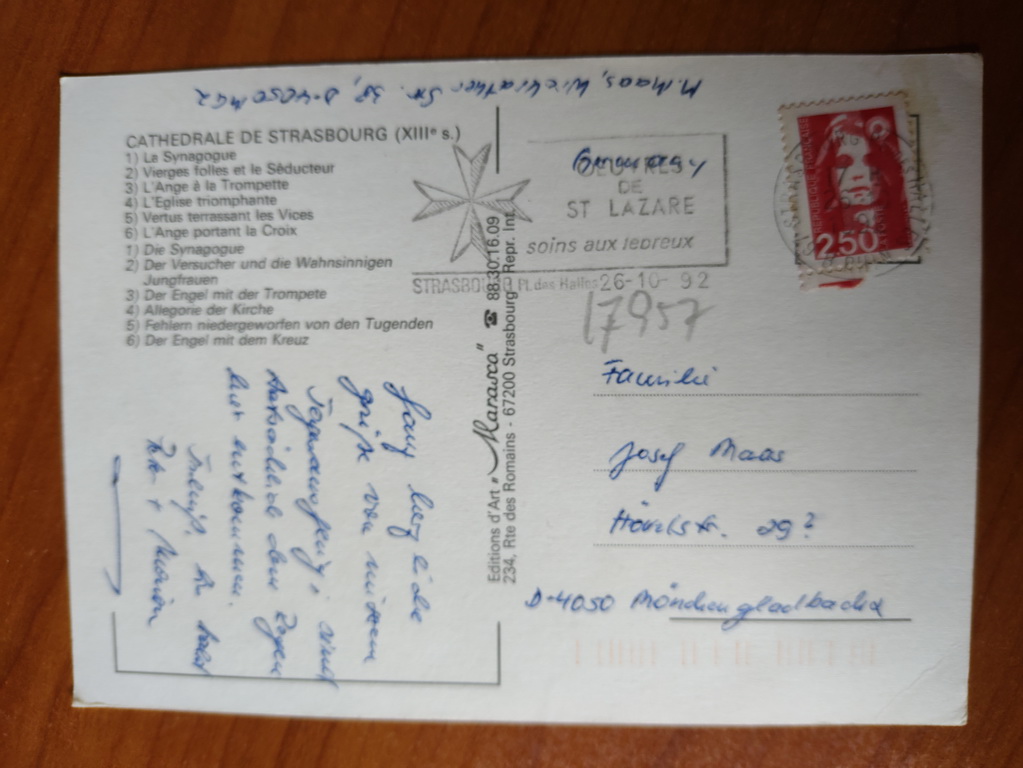 M. Maas, Wickrather Str. 38, D-4050 MG 2
CATHEDRALE DE STRASBOURG (XIIIe s.)
1) La Synagogue
2) Vierges folles et le Séducteur
3) L'Ange à la Trompette
4) L'Eglise triomphante
5) Vertus terrassant les Vices
6) L'Ange portant la Croix
1) Die Synagogue
2) Der Versucher und die Wahnsinnigen
Jungfrauen
3) Der Engel mit der Trompete
4) Allegorie der Kirche
5) Fehlern niedergeworfen von den Tugenden
6) Der Engel mit dem Kreuz
Ganz herzliche
Grüße von unserem
sind
tatsächlich dem Regen
entkommen.
+ Marion
Editions d'Art "Marasca" ☎ 88.30.16.09
234, Rte des Romains - 67200 Strasbourg Repr. Int.
OEUVRES
DE
ST LAZARE
soins aux lepreux
STRASBOURG Pl. des Halles 26-10-92
REPUBLIQUE FRANCAISE
2,50
17957
Familie
Josef Maas
29?
D-4050 Mönchengladbach 2